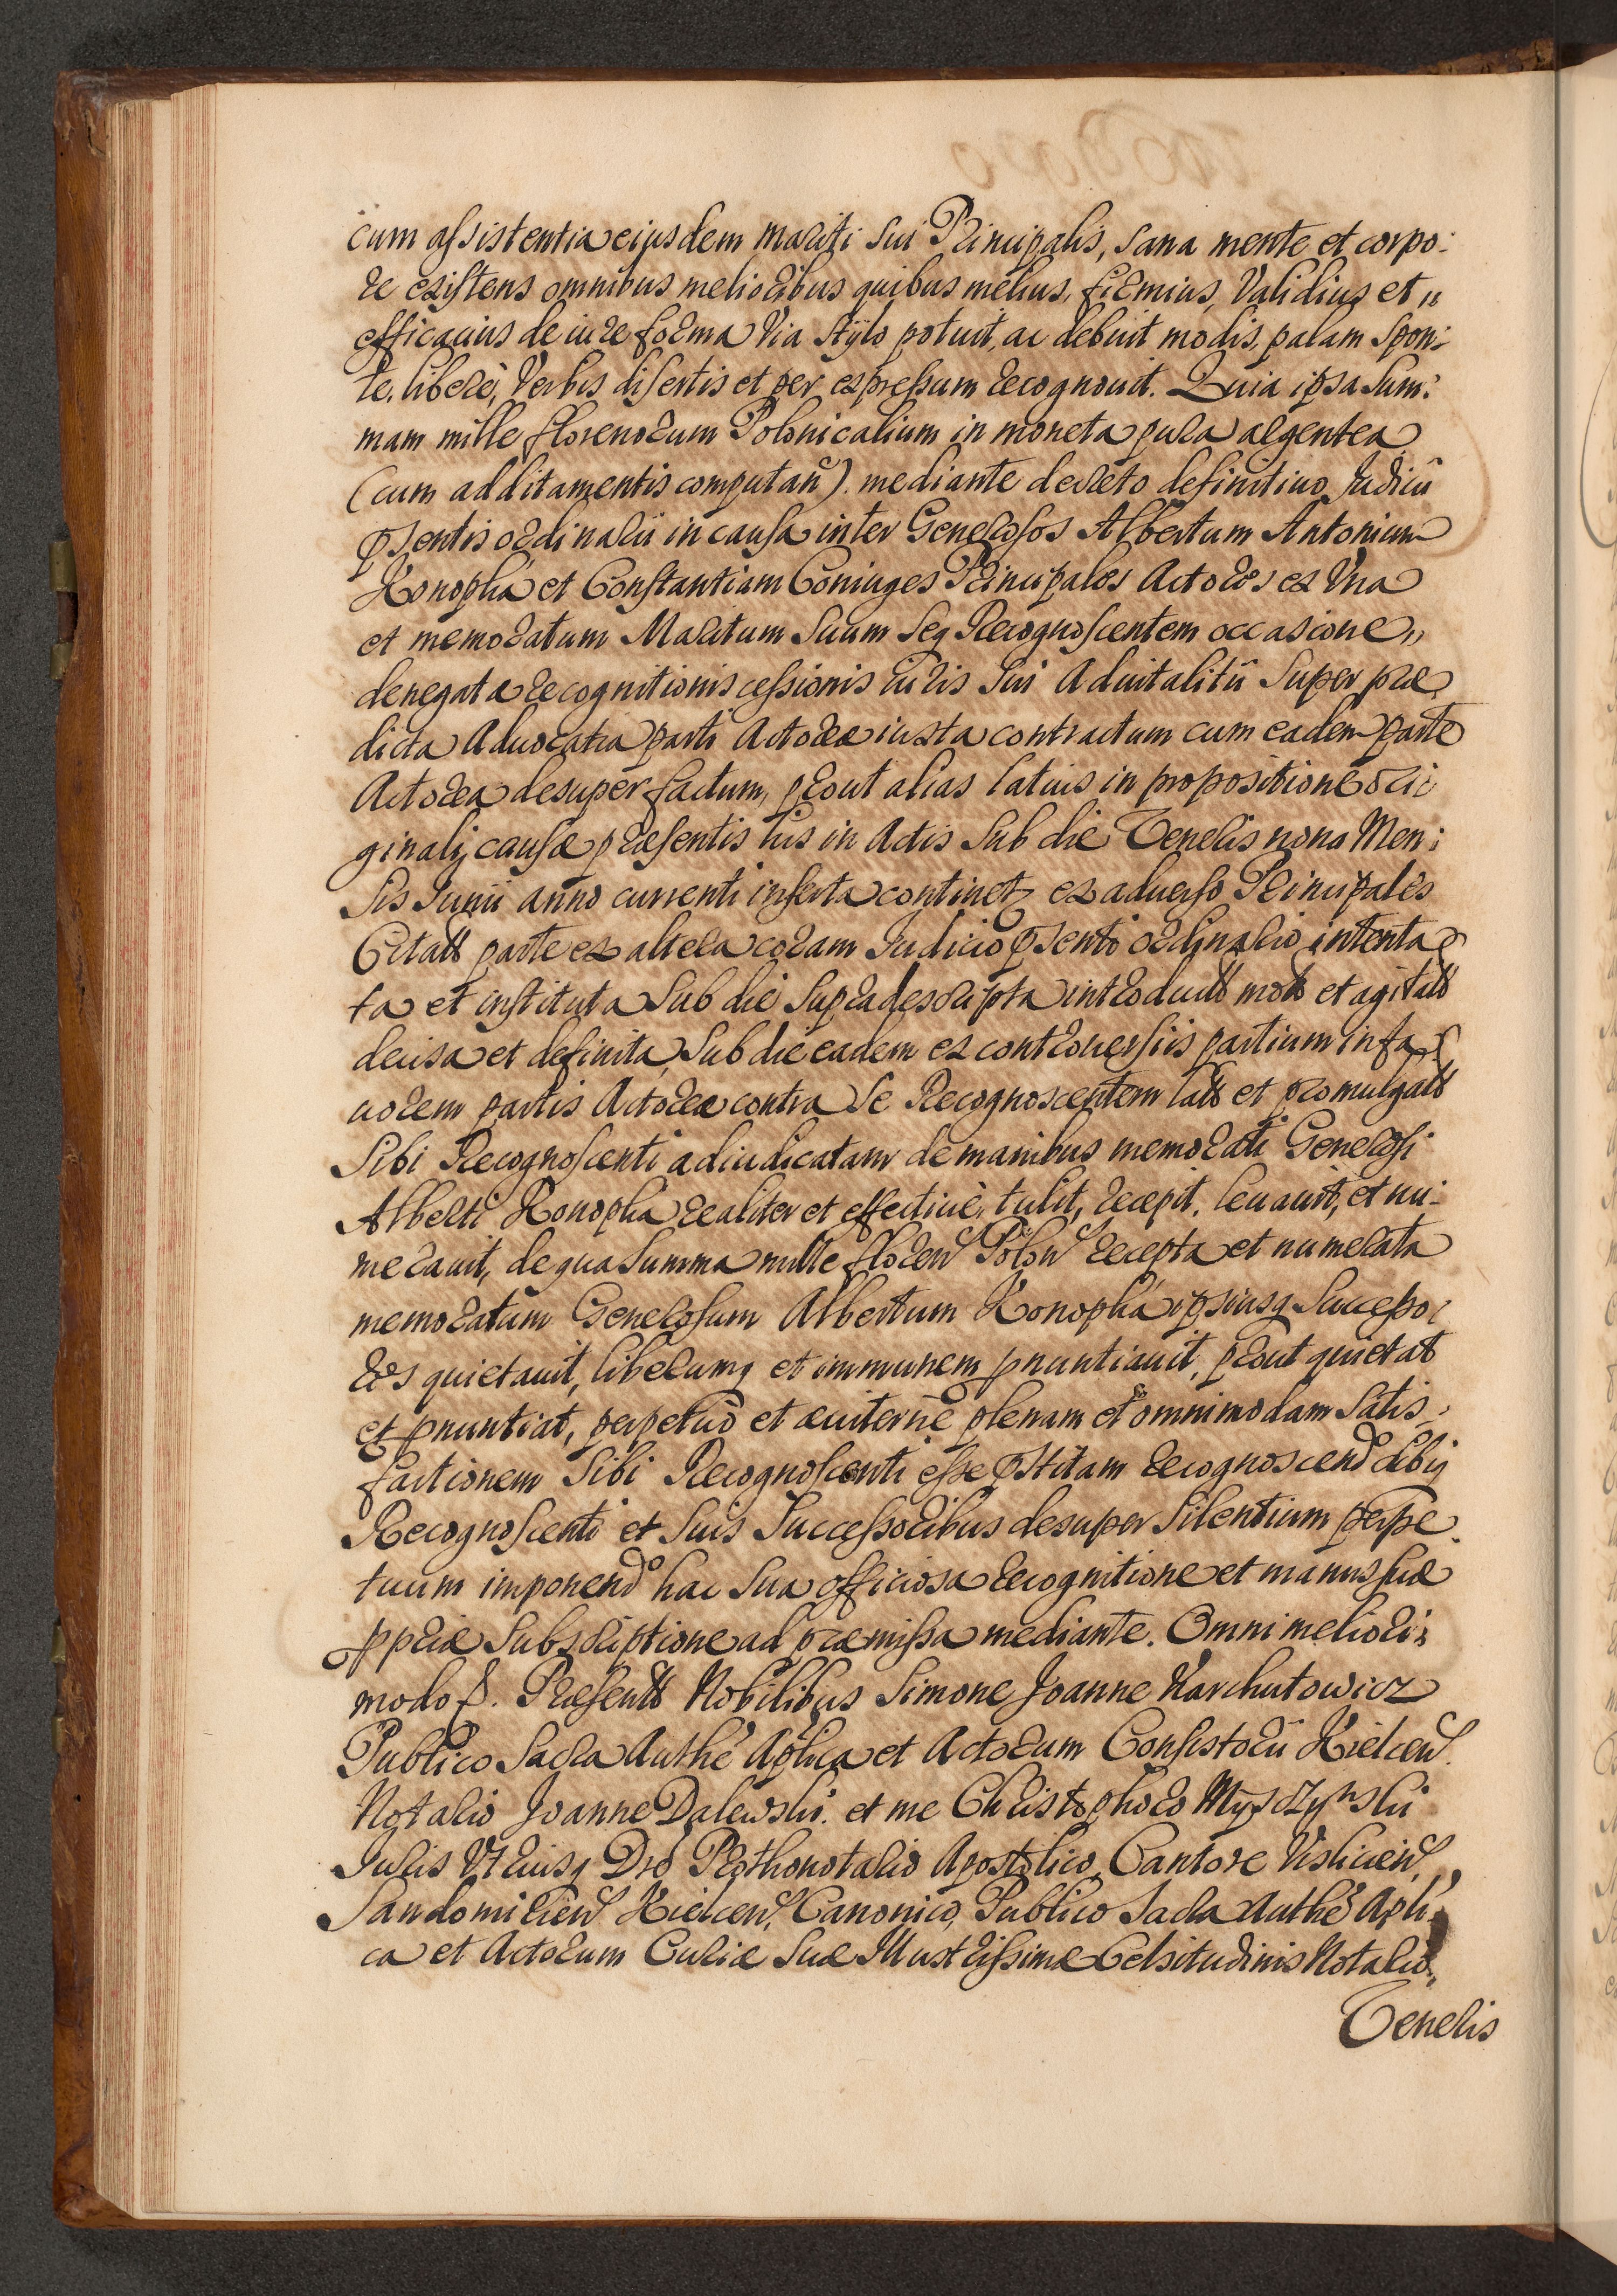 cum assistentia eiusdem Mariti sui Principalis, sana mente et corpo:
re existens omnibus melioribus quibus melius, firmius, Validius et
efficacius de iure forma Via stylo potuit, ac debuit modis, palam spon:
te, liberè, Verbis disertis et per expressum recognouit. Quia ipsa sum:
mam mille florenorum Polonicalium in moneta pura argentea
(cum additamentis computañ) mediante decreto definitiuo Judicii
pñsentis ordinarii in causa inter Generosos Albertum Antonium
Konopka et Constantiam Coniuges Principales Actores ex Vna
et memoratum Maritum Suum seq Recognoscentem occasione
denegatæ recognitionis cessionis iuris sui Aduitalitii super præ
dicta Aduocatia parti Actoreæ iuxta contractum cum eadem parte
Actorea desuper factum, prout alias latius in propositione ori:
ginali causæ præsentis his in Actis sub die Veneris nona Men:
sis Junii anno currenti inserta continetʒ ex aduerso Principales
Citatt parte ex altera coram Judicio pñsenti ordinario intenta
ta et instituta sub die supradescripta introductt mott et agitatt
decisa et definita, sub die eadem ex controuersiis partium in fa
uorem partis Actoreæ contra Se Recognoscentem latt et promulgatt
Sibi Recognoscenti adiudicatam de manibus memorati Generosi
Alberti Konopka realiter et effectiuè, tulit, recepit, leuauit, et nu:
merauit, de qua Summa mille floreñ Poloñ recepta et numerata
memoratum Generosum Albertum Konopka ipsiusq Successo:
res quietauit, liberumq et immunem pnuntiauit, prout quietat
et pnuntiat, perpetuò et æuiternè plenam et omnimodam Satis
factionem Sibi Recognoscenti esse pstitam recognoscend sibiq
Recognoscenti et suis Successoribus desuper silentium perpe
tuum imponendo hac sua officiosa recognitione et manus suæ
ppriæ subscriptione ad præmissa mediante. Omni meliori:
modo. Præsentt Nobilibus Simone Joanne Karchutowicz
Publico Sacra Authe Aplica et Actorum Consistorii Kielceñ
Notario Joanne Dalewski. et me Christophoro Myszczynski
Juris Vtriusq Dre Prothonotario Apostolico, Cantore Visliceñ
Sandomirieñ Kielceñ, Canonico, Publico Sacra Authe Apli
ca et Actorum Curiæ Suæ Illustrissimæ Celsitudinis Notario
Veneris